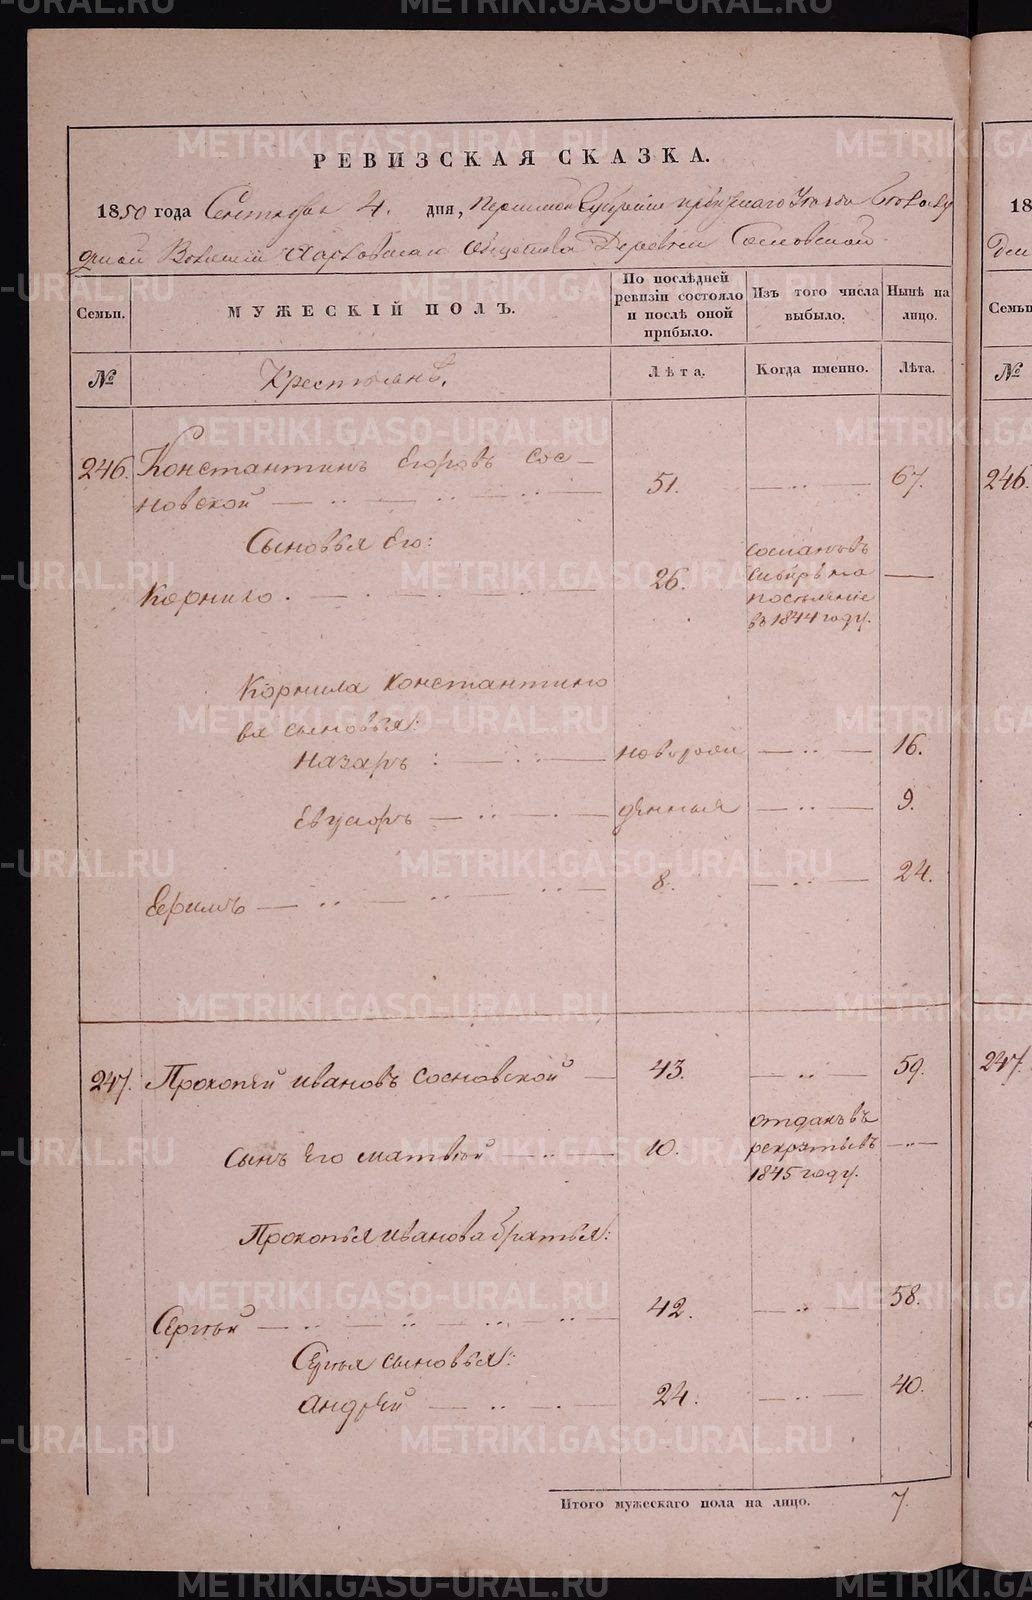 METRIKI.GASO-URAL.RU
РЕВИЗСКАЯ СКАЗКА.
1850 года Сентября 4. дня, Пермской Губернии Уезда
Волости Общества Деревни Сосновской
Семьи.
МУЖЕСКІЙ ПОЛЪ.
По послѣдней ревизіи состояло и послѣ оной прибыло.
Изъ того числа выбыло.
Нынѣ на лицо.
№
Крестьянъ.
Лѣта.
Когда именно.
Лѣта.
246. Константинъ Егоровъ Сос-
новской 51. 67.
Сыновья Его:
Корнило 26. сосланъ въ Сибирь на поселеніе въ 1844 году.
Корнила Константино
ва сыновья:
Назаръ новорож 16.
денныя 9.
Ефимъ 8. 24.
247. Прокопій Ивановъ Сосновской 43. 59.
Сынъ Его Матвѣй 10. отданъ въ рекруты въ 1845 году.
Прокопья Иванова братья:
Сергѣй 42. 58.
Сергѣя сыновья:
Андрей 24. 40.
Итого мужескаго пола на лицо. 7.
18
Семьи
№
246.
247.